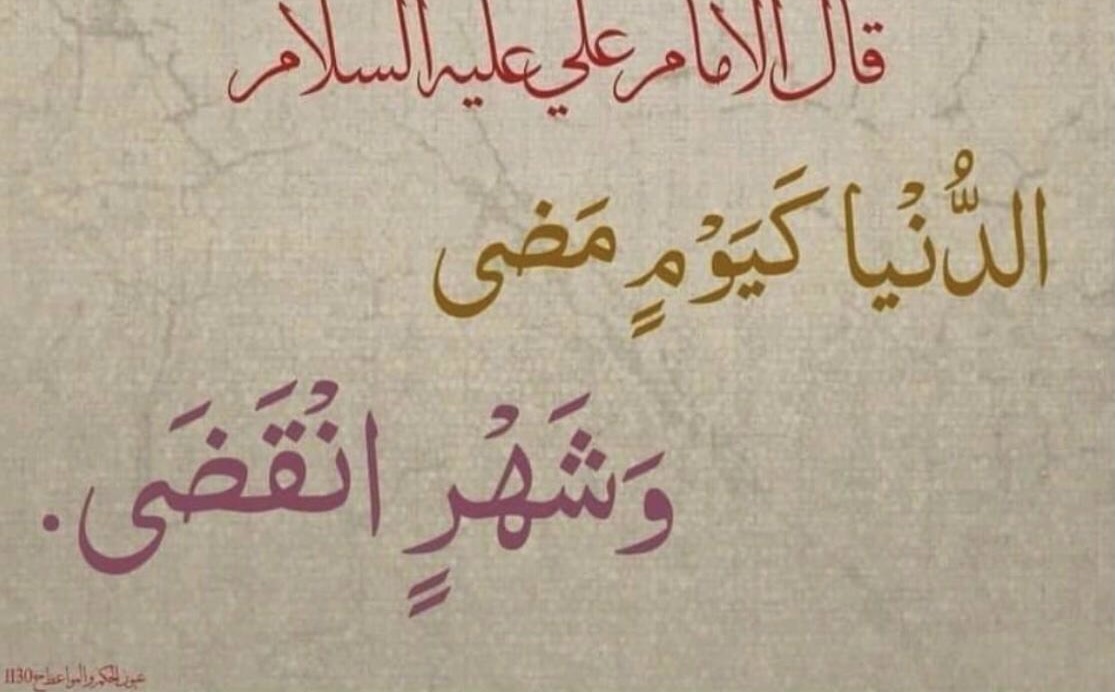 قال الامام علي عليه السلام
الدُّنْيا كَيَوْمٍ مَضى
وَشَهْرٍ انْقَضَى.
عيون الحكم والمواعظ ح1130